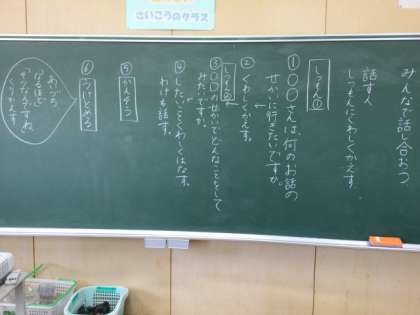 さいこうのクラス
みんなで話し合おう
話す人
しつもんにくわしくかえす。
しつもん①
①〇〇さんは、何のお話の
せかいに行きたいですか。
②くわしくかえす。
しつもん②
③〇〇のせかいでどんなことをして
みたいですか。
④したいことをくわしくはなす。
わけも話す。
⑤かんそう
⑥うけとめる
なるほど